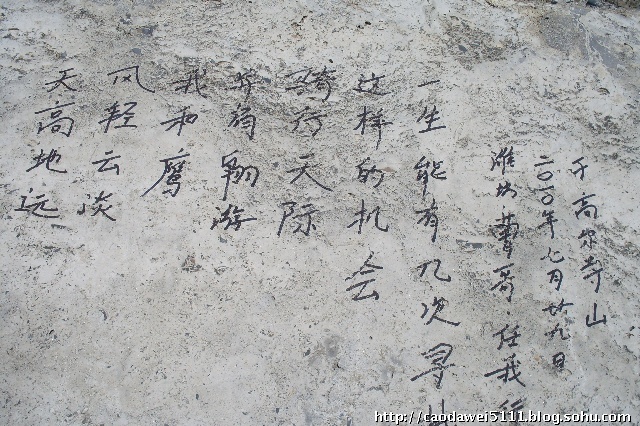 天高地远
风轻云淡
我和鹰
并肩翱游
骑行天际
这样的机会
一生能有几次寻
潍坊曹哥·任我行
二〇一〇年七月廿九日
于高尔寺山
http://caodawei5111.blog.sohu.com